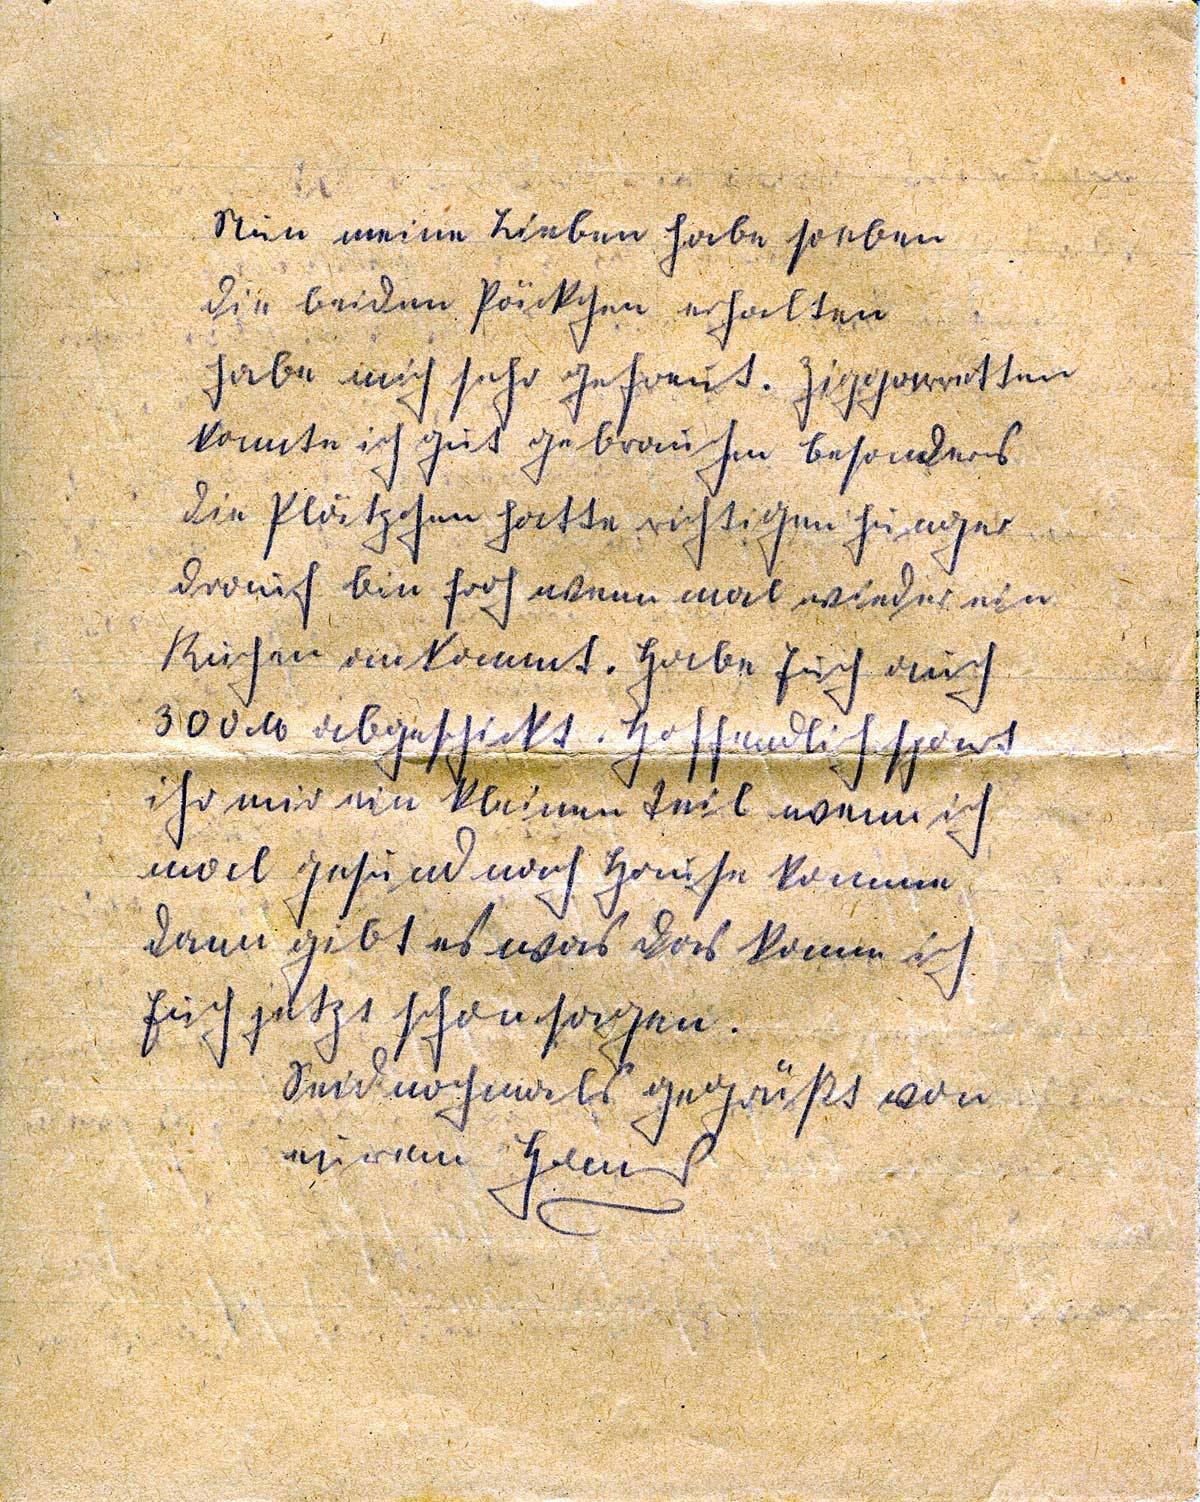 Nun meine Lieben habe soeben
die beiden Päckchen erhalten
habe mich sehr gefreut. Ziggarretten
konnte ich gut gebrauchen besonders
die Plätzchen hatte richtigen hunger
drauf bin froh wenn mal wieder ein
Kuchen ankommt. Habe Euch auch
300 M abgeschickt. Hoffendlich spart
ihr mir ein kleinen Teil wenn ich
mal gesund nach Hause komme
dann gibt es was das kann ich
Euch jetzt schon sagen.
Seid nochmals gegrüßt von
eurem Hans